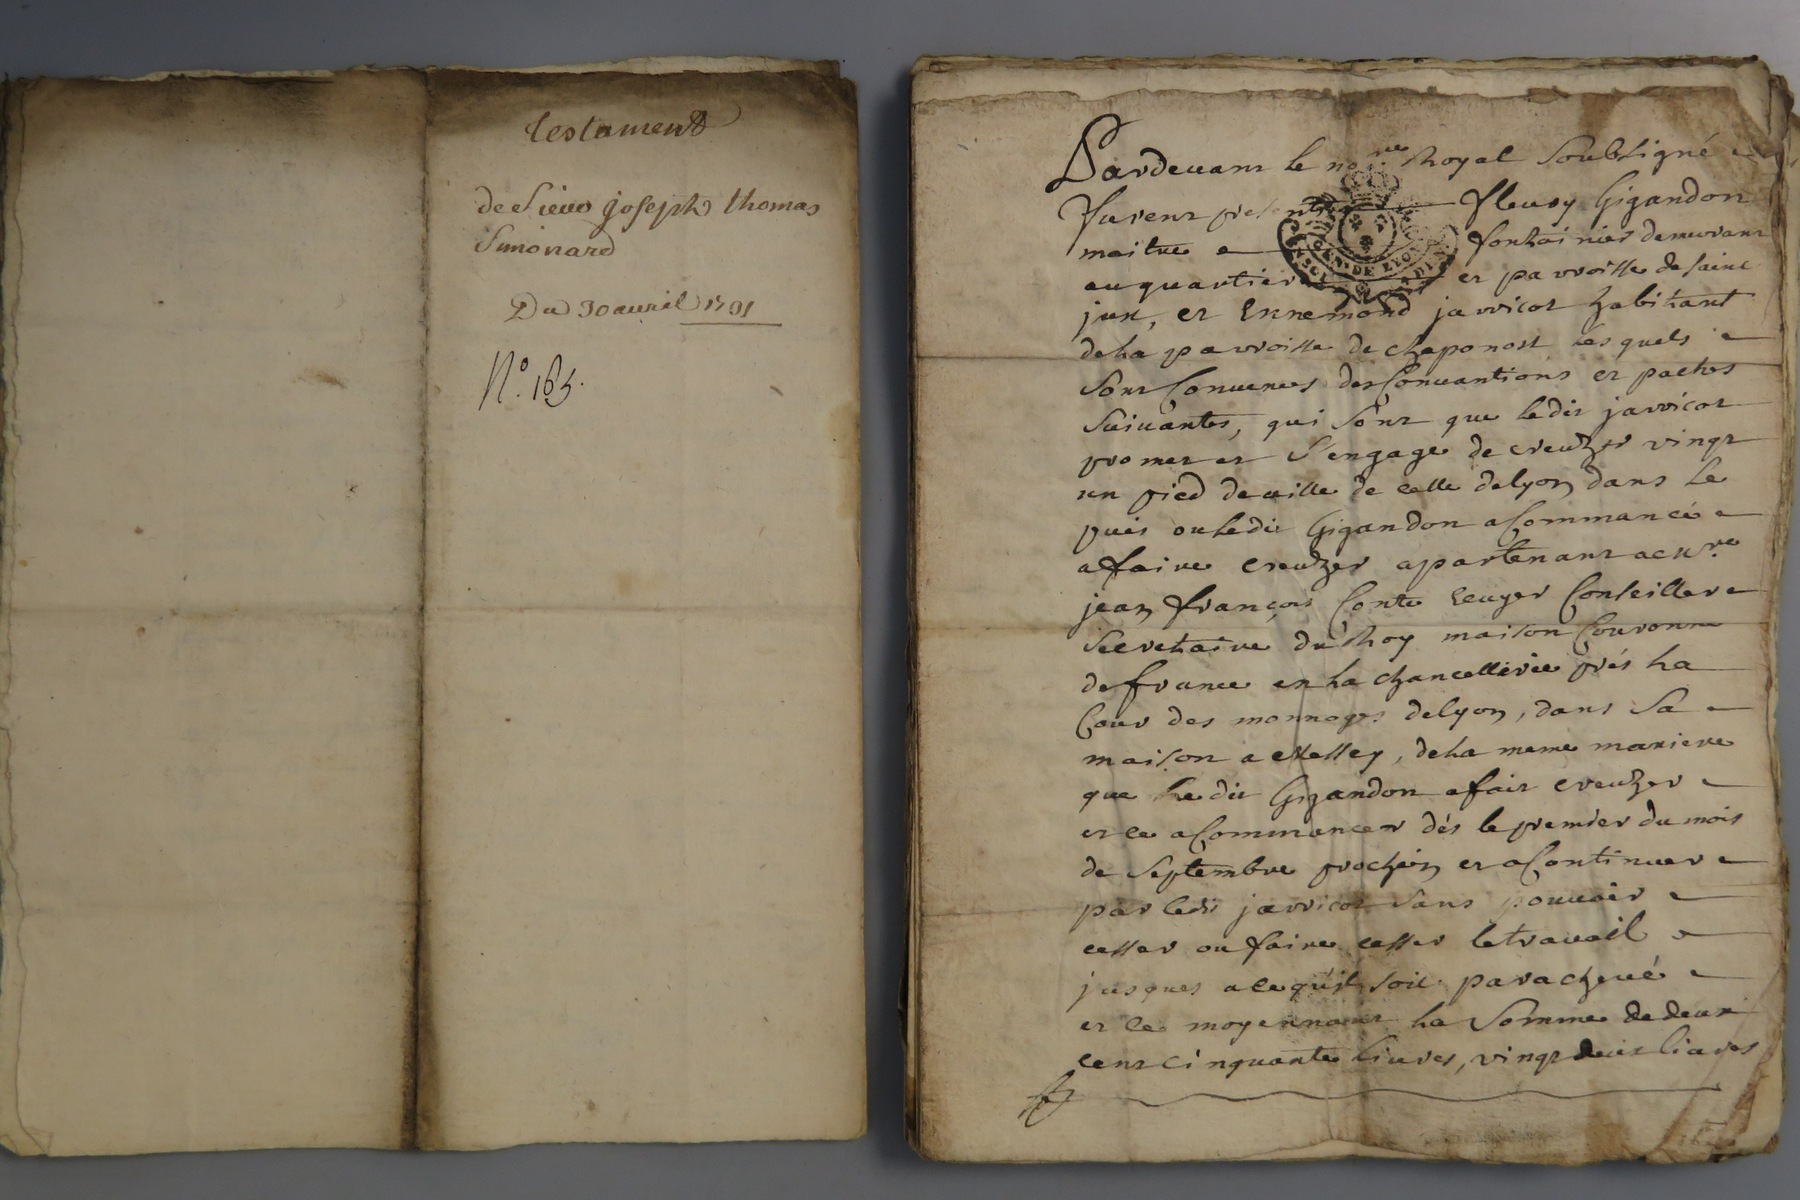 testament
de Sieur joseph thomas
Simonard
Du 30 avril 1791
N.° 165.
Pardevant le no.re Royal Soubsigné
furent presents fleury Gigandon
maitre fontainier demeurant
au quartier et parroisse de saint
just, et Ennemond jarricot habitant
de la parroisse de chaponost lesquels
Sont Convenues des Convantions et paches
Suivantes, qui Sont que ledit jarricot
promet et S'engage de creuzer vingt
un pied de ville de celle de lyon dans le
puis ou ledit Gigandon a Commancé
a faire creuzer apartenant a
jean françois Conte Ecuyer Conseiller
Secretaire du Roy maison Couronne
de france en la chancellerie prés la
Cour des monnoyes de lyon, dans Sa
maison a, de la meme maniere
que le dit Gigandon a fait creuzer
et ce a Commancer dés le premier du mois
de Septembre prochein et a Continuer
par ledit jarricot Sans pouvoir
cesser ou faire cesser le travail
jusques a ce qu'il soit parachevé
et ce moyennant la Somme de deux
cent cinquante livres, vingt